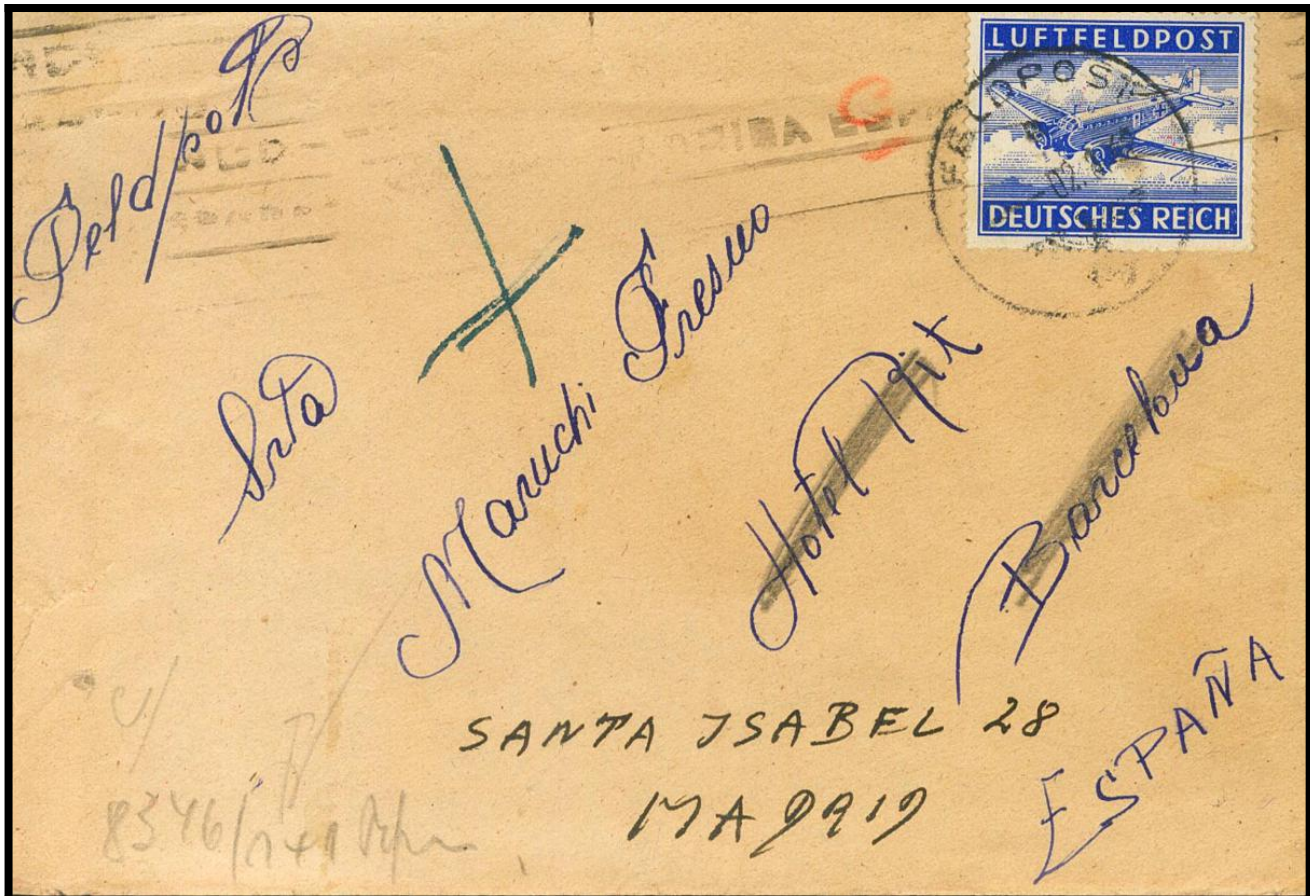 Feldpost
LUFTFELDPOST
DEUTSCHES REICH
FELDPOST
Srta
Maruchi Fresno
Hotel Rit
Barcelona
SANTA ISABEL 28
MADRID
ESPAÑA
8346